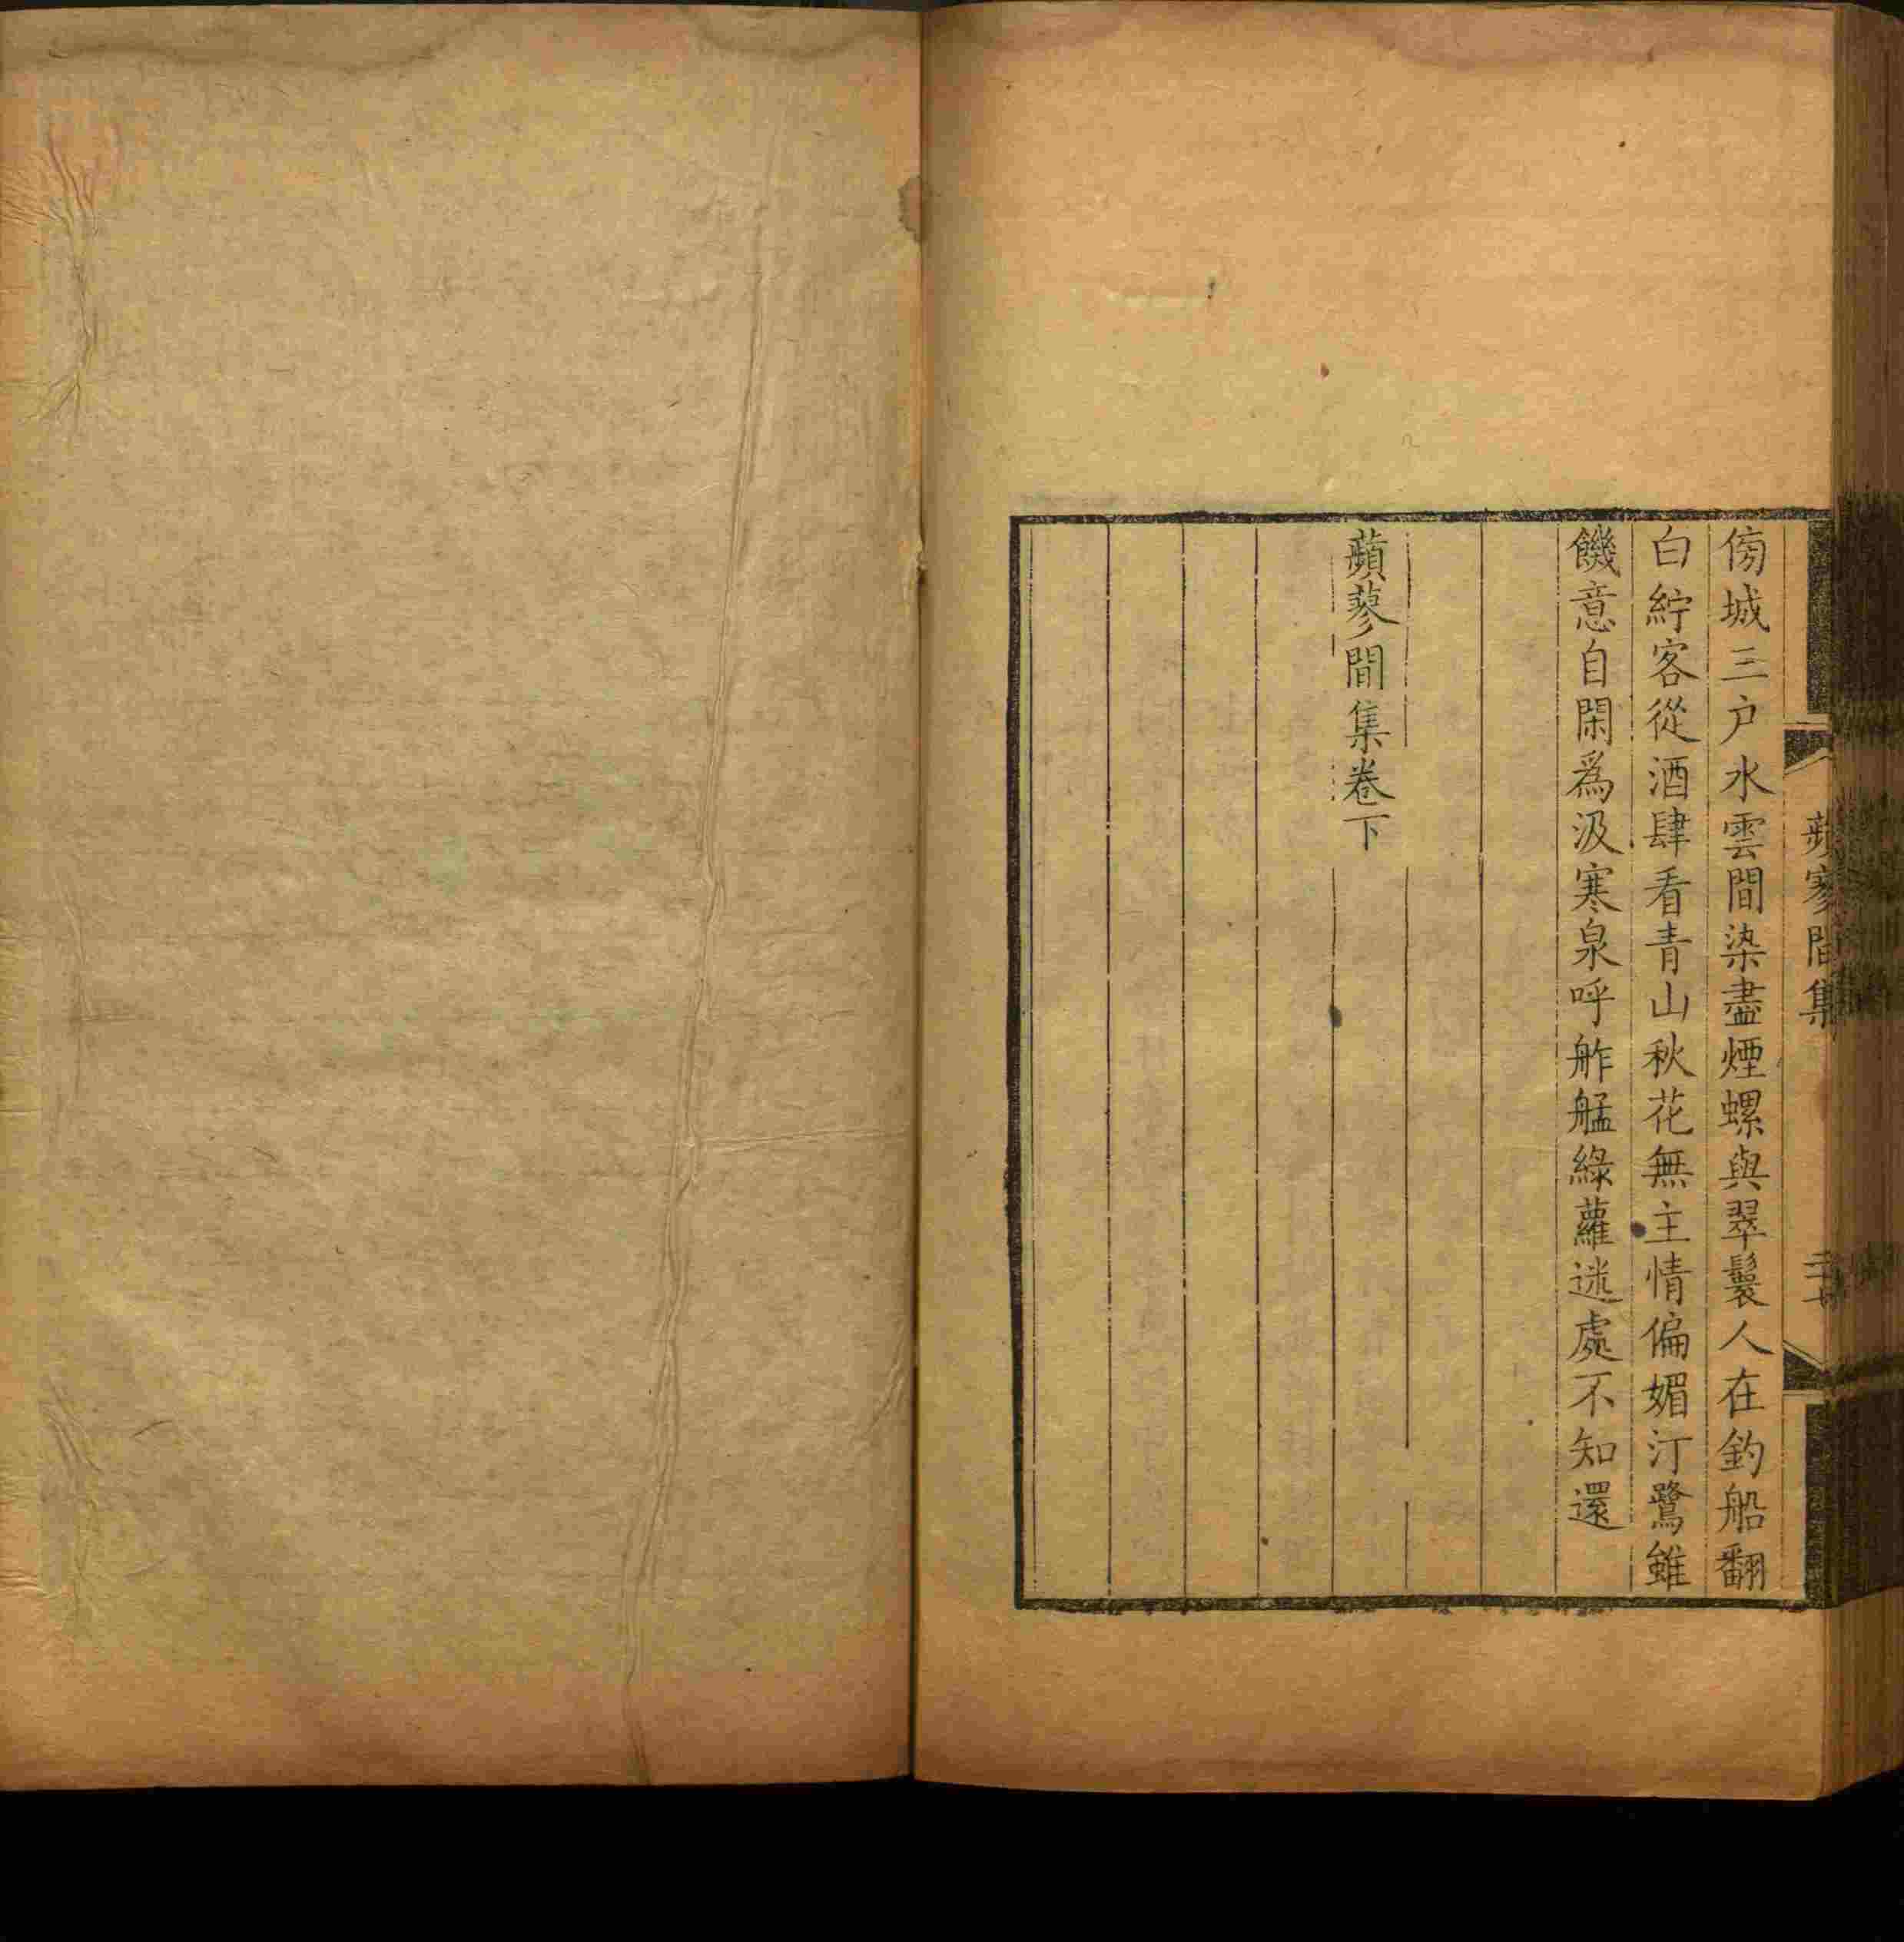 傍城三户水雲間染盡煙螺與翠鬟人在釣船翻
白紵客從酒肆看青山秋花無主情偏媚汀鷺雖
饑意自閑爲汲寒泉呼舴艋綠蘿迷處不知還
蘋蓼間集卷下
蘋蓼間集
二十七